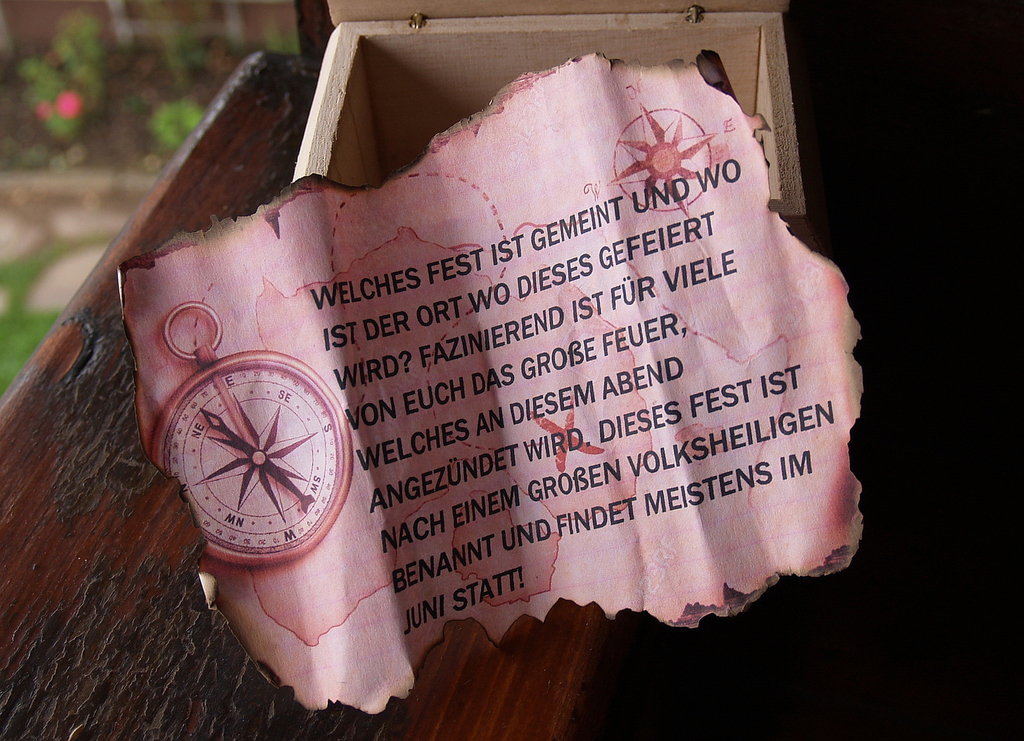 WELCHES FEST IST GEMEINT UND WO
IST DER ORT WO DIESES GEFEIERT
WIRD? FAZINIEREND IST FÜR VIELE
VON EUCH DAS GROßE FEUER,
WELCHES AN DIESEM ABEND
ANGEZÜNDET WIRD. DIESES FEST IST
NACH EINEM GROßEN VOLKSHEILIGEN
BENANNT UND FINDET MEISTENS IM
JUNI STATT!
E
W
E
SE
S
SW
W
NW
NE